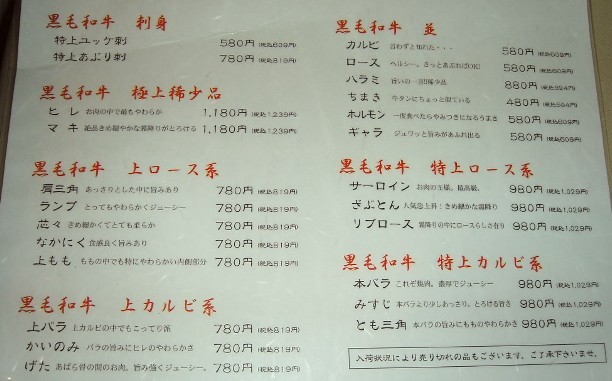 黒毛和牛 刺身
特上ユッケ刺 580円(税込609円)
特上あぶり刺 780円(税込819円)
黒毛和牛 極上稀少品
ヒレ お肉の中で最もやわらか 1,180円(税込1,239円)
マキ 絶品きめ細やかな霜降りがとろける 1,180円(税込1,239円)
黒毛和牛 上ロース系
肩三角 あっさりとした中に旨みあり 780円(税込819円)
ランプ とってもやわらかくジューシー 780円(税込819円)
芯々 きめ細かくてとても柔らか 780円(税込819円)
なかにく 食感良く旨みあり 780円(税込819円)
上もも ももの中でも特にやわらかい内側部分 780円(税込819円)
黒毛和牛 上カルビ系
上バラ 上カルビの中でもこってり派 780円(税込819円)
かいのみ バラの旨みにヒレのやわらかさ 780円(税込819円)
げた あばら骨の間のお肉。旨み強くジューシー。 780円(税込819円)
黒毛和牛 並
カルビ 言わずと知れた・・・ 580円(税込609円)
ロース ヘルシー。さっとあぶればOK! 580円(税込609円)
ハラミ 旨いの一言!稀少品 880円(税込924円)
ちまき 牛タンにちょっと似ている 480円(税込504円)
ホルモン 一度食べたらやみつきになるうまさ 580円(税込609円)
ギャラ ジュワッと旨みがあふれ出る 580円(税込609円)
黒毛和牛 特上ロース系
サーロイン お肉の王様。最高級。 980円(税込1,029円)
ざぶとん 人気急上昇!きめ細かな霜降り 980円(税込1,029円)
リブロース 霜降りの中にロースらしさ有り 980円(税込1,029円)
黒毛和牛 特上カルビ系
本バラ これぞ焼肉。濃厚でジューシー 980円(税込1,029円)
みすじ 本バラより少しあっさり。とろける旨さ 980円(税込1,029円)
とも三角 本バラの旨みにもものやわらかさ 980円(税込1,029円)
入荷状況により売り切れの品もございます。ご了承下さいませ。